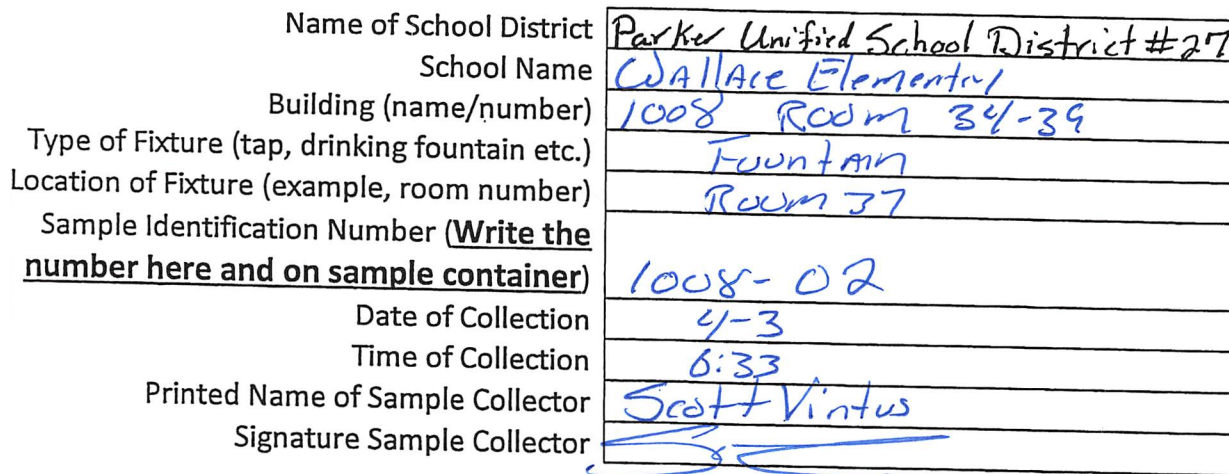 Name of School District Parker Unified School District #27
School Name Wallace Elementry
Building (name/number) 1008 Room 34-39
Type of Fixture (tap, drinking fountain etc.) Fountain
Location of Fixture (example, room number) Room 37
Sample Identification Number (Write the
number here and on sample container) 1008-02
Date of Collection 4-3
Time of Collection 6:33
Printed Name of Sample Collector Scott Vintus
Signature Sample Collector